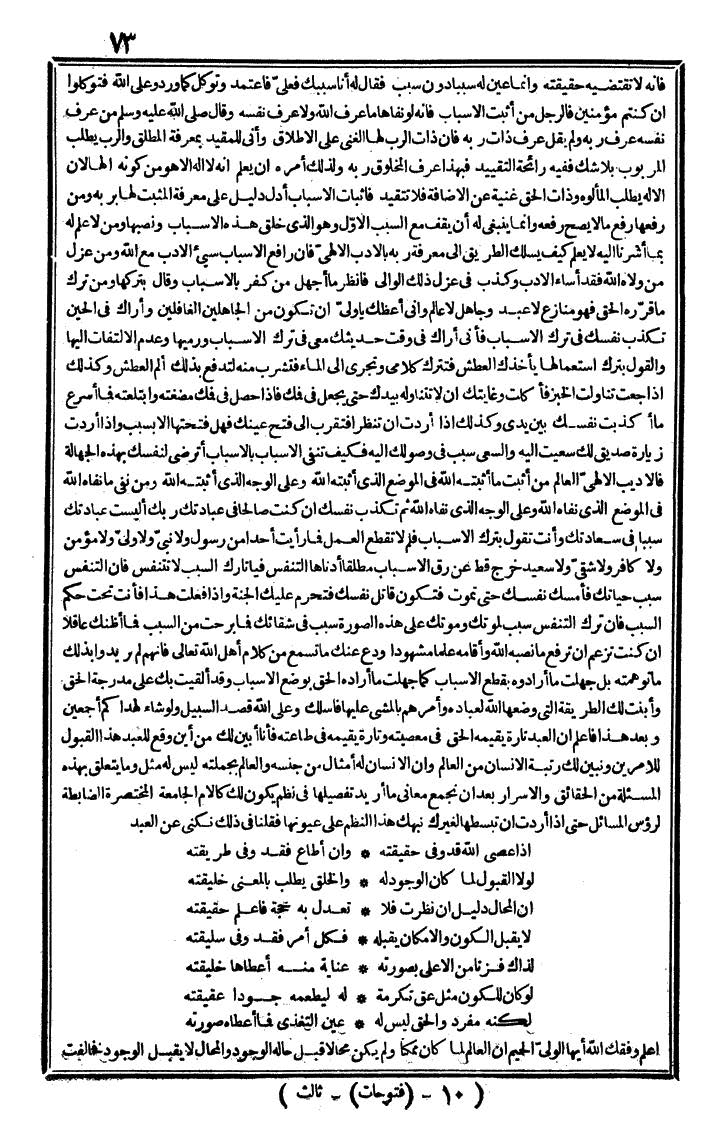 ٧٣
فانه لا تقتضيه حقيقته وانما عين له سببا دون سبب فقال له أنا سببك فعلىّ فاعتمد وتوكل كما ورد وعلى الله فتوكلوا
ان كنتم مؤمنين فالرجل من أثبت الاسباب فانه لو نفاها ما عرف الله ولا عرف نفسه وقال صلى الله عليه وسلم من عرف
نفسه عرف ربه ولم يقل عرف ذات ربه فان ذات الرب لها الغنى على الاطلاق وأنى للمقيد بمعرفة المطلق والرب يطلب
المربوب بلا شك ففيه رائحة التقييد فبهذا عرف المخلوق ربه ولذلك أمره ان يعلم انه لا اله الا هو من كونه الها لان
الاله يطلب المألوه وذات الحق غنية عن الاضافة فلا تتقيد فاثبات الاسباب أدل دليل على معرفة المثبت لها بربه ومن
رفعها رفع ما لا يصح رفعه وانما ينبغى له أن يقف مع السبب الاوّل وهو الذى خلق هذه الاسباب ونصبها ومن لا علم له
بما أشرنا اليه لا يعلم كيف يسلك الطريق الى معرفة ربه بالادب الالهىّ فان رافع الاسباب سىء الادب مع الله ومن عزل
من ولاه الله فقد أساء الادب وكذب فى عزل ذلك الوالى فانظر ما أجهل من كفر بالاسباب وقال بتركها ومن ترك
ما قرّره الحق فهو منازع لا عبد وجاهل لا عالم وانى أعظك يا ولىّ ان تكون من الجاهلين الغافلين وأراك فى الحين
تكذب نفسك فى ترك الاسباب فأنى أراك فى وقت حديثك معى فى ترك الاسباب ورميها وعدم الالتفات اليها
والقول بترك استعمالها يأخذك العطش فتترك كلامى وتجرى الى الماء فتشرب منه لتدفع بذلك ألم العطش وكذلك
اذا جعت تناولت الخبز فأكلت وغايتك ان لا تتناوله بيدك حتى يجعل فى فك فاذا حصل فى فك مضغته وابتلعته فما أسرع
ما أكذبت نفسك بين يدى وكذلك اذا أردت ان تنظر افتقرت الى فتح عينك فهل فتحتها الا بسبب واذا أردت
زيارة صديق لك سعيت اليه والسعى سبب فى وصولك اليه فكيف تنفى الاسباب بالاسباب أترضى لنفسك بهذه الجهالة
فالاديب الالهىّ العالم من أثبت ما أثبته الله فى الموضع الذى أثبته الله وعلى الوجه الذى أثبته الله ومن نفى ما نفاه الله
فى الموضع الذى نفاه الله وعلى الوجه الذى نفاه الله ثم تكذب نفسك ان كنت صالحا فى عبادتك ربك أليست عبادتك
سببا فى سعادتك وأنت تقول بترك الاسباب فلم لا تقطع العمل فما رأيت أحدا من رسول ولا نبىّ ولا ولىّ ولا مؤمن
ولا كافر ولا شقىّ ولا سعيد خرج قط عن رق الاسباب مطلقا أدناها التنفس فيا تارك السبب لا تتنفس فان التنفس
سبب حياتك فأمسك نفسك حتى تموت فتكون قاتل نفسك فتحرم عليك الجنة واذا فعلت هذا فأنت تحت حكم
السبب فان ترك التنفس سبب لموتك وموتك على هذه الصورة سبب فى شقائك فما برحت من السبب فما أظنك عاقلا
ان كنت تزعم ان ترفع ما نصبه الله وأقامه علما مشهودا ودع عنك ما تسمع من كلام أهل الله تعالى فانهم لم يريدوا بذلك
ما توهمته بل جهلت ما أرادوه بقطع الاسباب كما جهلت ما أراده الحق بوضع الاسباب وقد ألقيت بك على مدرجة الحق
وأبنت لك الطريقة التى وضعها الله لعباده وأمرهم بالمشى عليها فاسلك وعلى الله قصد السبيل ولو شاء لهداكم أجمعين
وبعد هذا فاعلم ان العبد تارة يقيمه الحق فى معصيته وتارة يقيمه فى طاعته فأنا أبين لك من أين وقع للعبد هذا القبول
للامرين ونبين لك رتبة الانسان من العالم وان الانسان له أمثال من جنسه والعالم بجملته ليس له مثل وما يتعلق بهذه
المسئلة من الحقائق والاسرار بعد ان نجمع معانى ما أريد تفصيلها فى نظم يكون لك كالام الجامعة المختصرة الضابطة
لرؤس المسائل حتى اذا أردت ان تبسطها لغيرك نبهك هذا النظم على عيونها فقلنا فى ذلك نكنى عن العبد
اذا عصى الله قد وفى حقيقته * وان أطاع فقد وفى طريقته
لولا القبول لما كان الوجود له * والخلق يطلب بالمعنى خليقته
ان المحال دليل ان نظرت فلا * تعدل به حجة فاعلم حقيقته
لا يقبل الكون والامكان يقبله * فكل أمر فقد وفى سليقته
لذاك فزنا من الاعلى بصورته * عناية منه أعطاها خليقته
لو كان للكون مثل عق تكرمة * له ليطعمه جودا عقيقته
لكنه مفرد والحق ليس له * عين التغذى فما أعطاه صورته
اعلم وفقك الله أيها الولىّ الحميم ان العالم لما كان ممكنا ولم يكن محالا قبل حالة الوجود والمحال لا يقبل الوجود فخالفت
( ١٠ - (فتوحات) - ثالث )